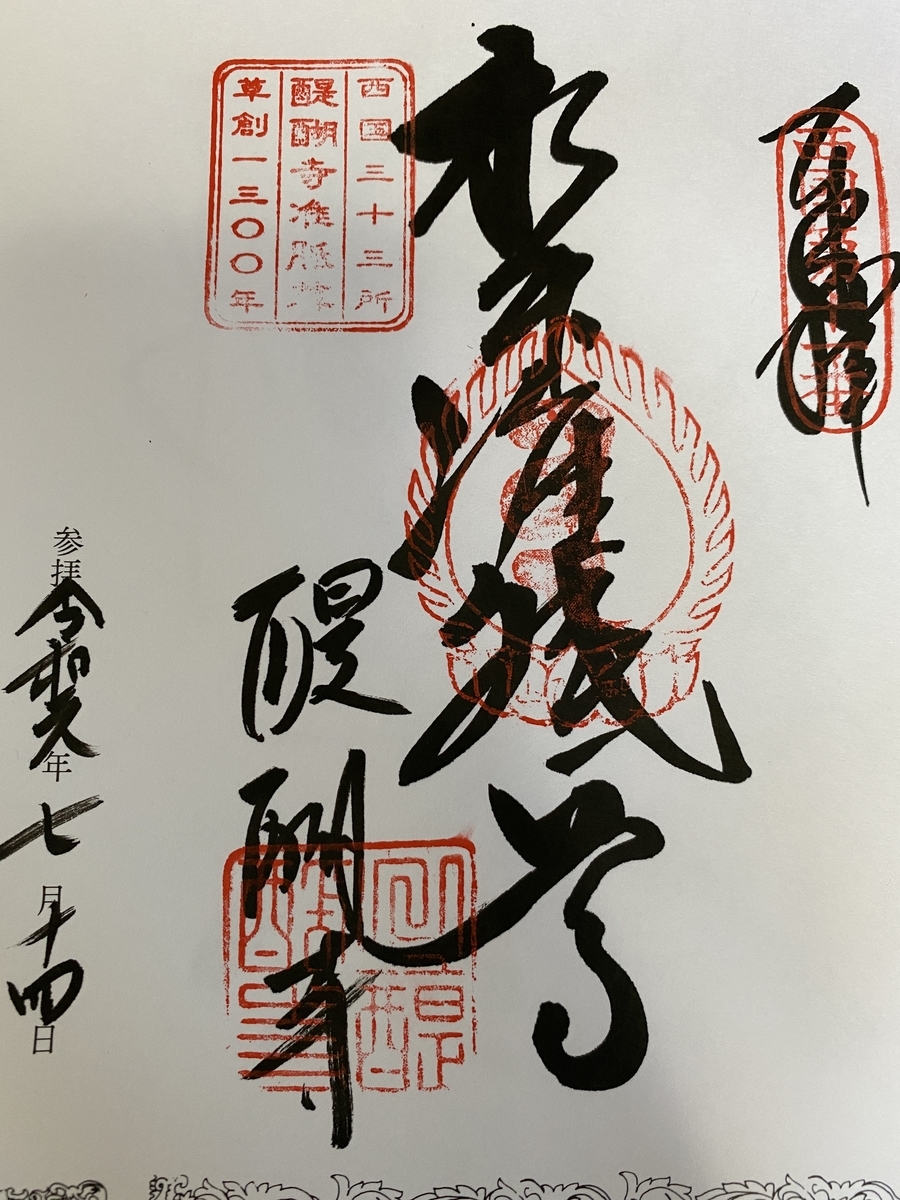 西國第十一番
准胝尊
西国三十三所
醍醐寺准胝堂
草創一三〇〇年
醍醐寺
参拝令和元年七月十四日